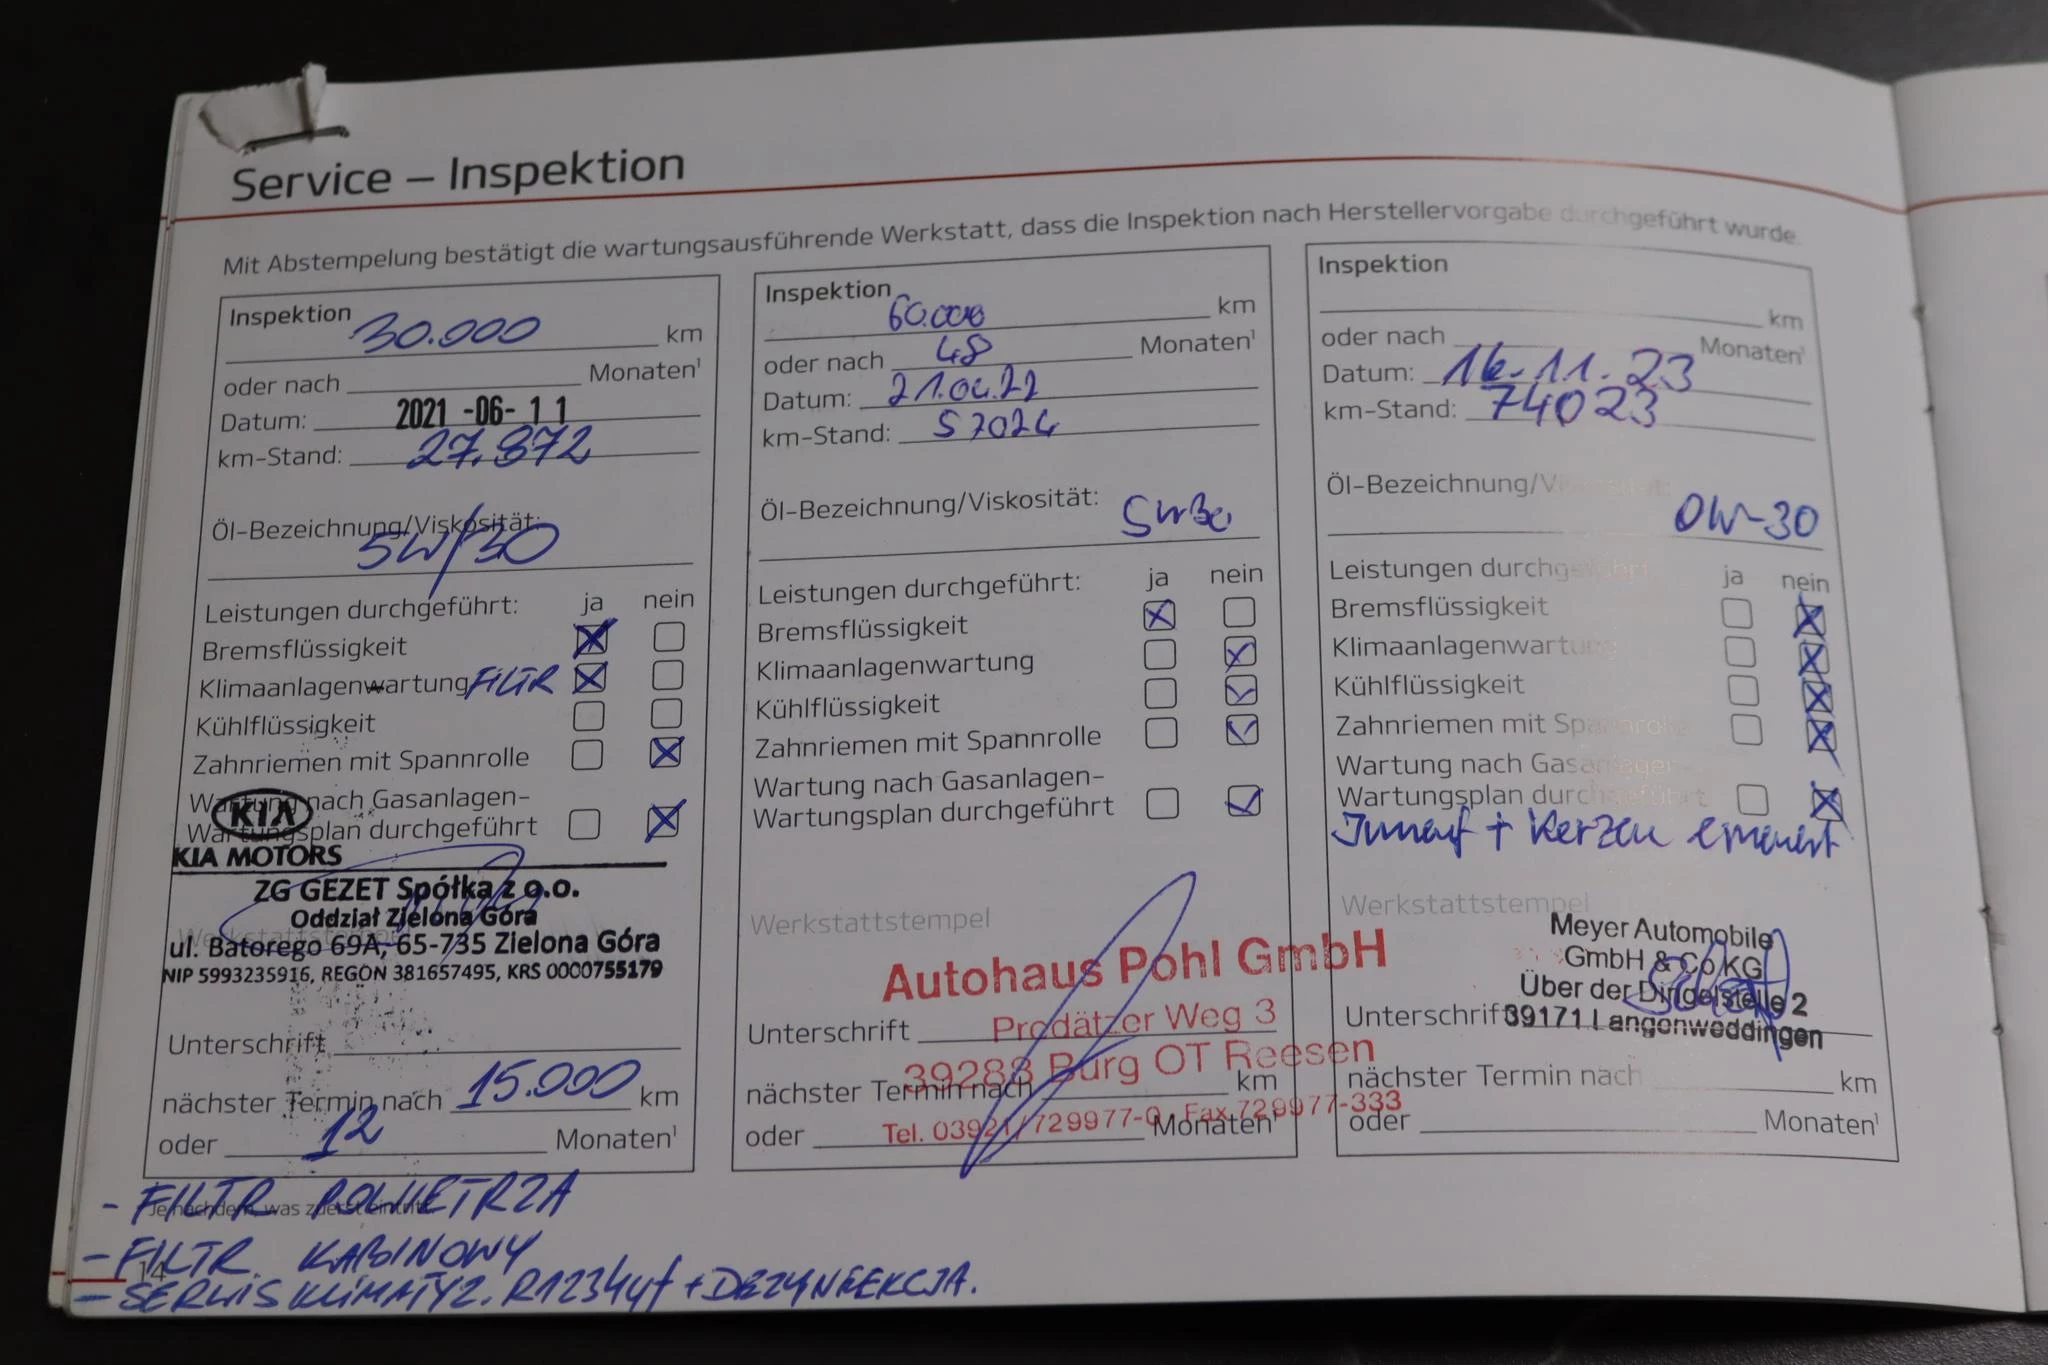 Service – Inspektion
Mit Abstempelung bestätigt die wartungsausführende Werkstatt, dass die Inspektion nach Herstellervorgabe durchgeführt wurde.
Inspektion 30.000 km
oder nach Monaten¹
Datum: 2021 -06- 11
km-Stand: 27.872
Öl-Bezeichnung/Viskosität:
5W/30
Leistungen durchgeführt: ja nein
Bremsflüssigkeit
Klimaanlagenwartung FILTR
Kühlflüssigkeit
Zahnriemen mit Spannrolle
Wartung nach Gasanlagen-
Wartungsplan durchgeführt
KIA
KIA MOTORS
ZG GEZET Spółka z o.o.
Oddział Zielona Góra
Werkstattstempel
ul. Batorego 69A, 65-735 Zielona Góra
NIP 5993235916, REGON 381657495, KRS 0000755179
Unterschrift
nächster Termin nach 15.000 km
oder 12 Monaten¹
Inspektion 60.000 km
oder nach 48 Monaten¹
Datum: 21.04.22
km-Stand: 57024
Öl-Bezeichnung/Viskosität: 5W30
Leistungen durchgeführt: ja nein
Bremsflüssigkeit
Klimaanlagenwartung
Kühlflüssigkeit
Zahnriemen mit Spannrolle
Wartung nach Gasanlagen-
Wartungsplan durchgeführt
Werkstattstempel
Autohaus Pohl GmbH
Unterschrift Prödätzer Weg 3
39288 Burg OT Reesen
nächster Termin nach km
Tel. 03921/729977-0 Fax 729977-333
oder Monaten¹
Inspektion
km
oder nach Monaten¹
Datum: 16.11.23
km-Stand: 74023
Öl-Bezeichnung/Viskosität:
0W-30
Leistungen durchgeführt ja nein
Bremsflüssigkeit
Klimaanlagenwartung
Kühlflüssigkeit
Zahnriemen mit Spannrolle
Wartung nach Gasanlagen-
Wartungsplan durchgeführt
+ Kerzen erneuert
Werkstattstempel
Meyer Automobile
GmbH & Co KG
Über der Dingelstelle 2
39171 Langenweddingen
Unterschrift
nächster Termin nach km
oder Monaten¹
- FILTR POWIETRZA
¹Je nachdem, was zuerst eintritt
- FILTR KABINOWY
14
- SERWIS KLIMATYZ. R1234yf + DEZYNFEKCJA.